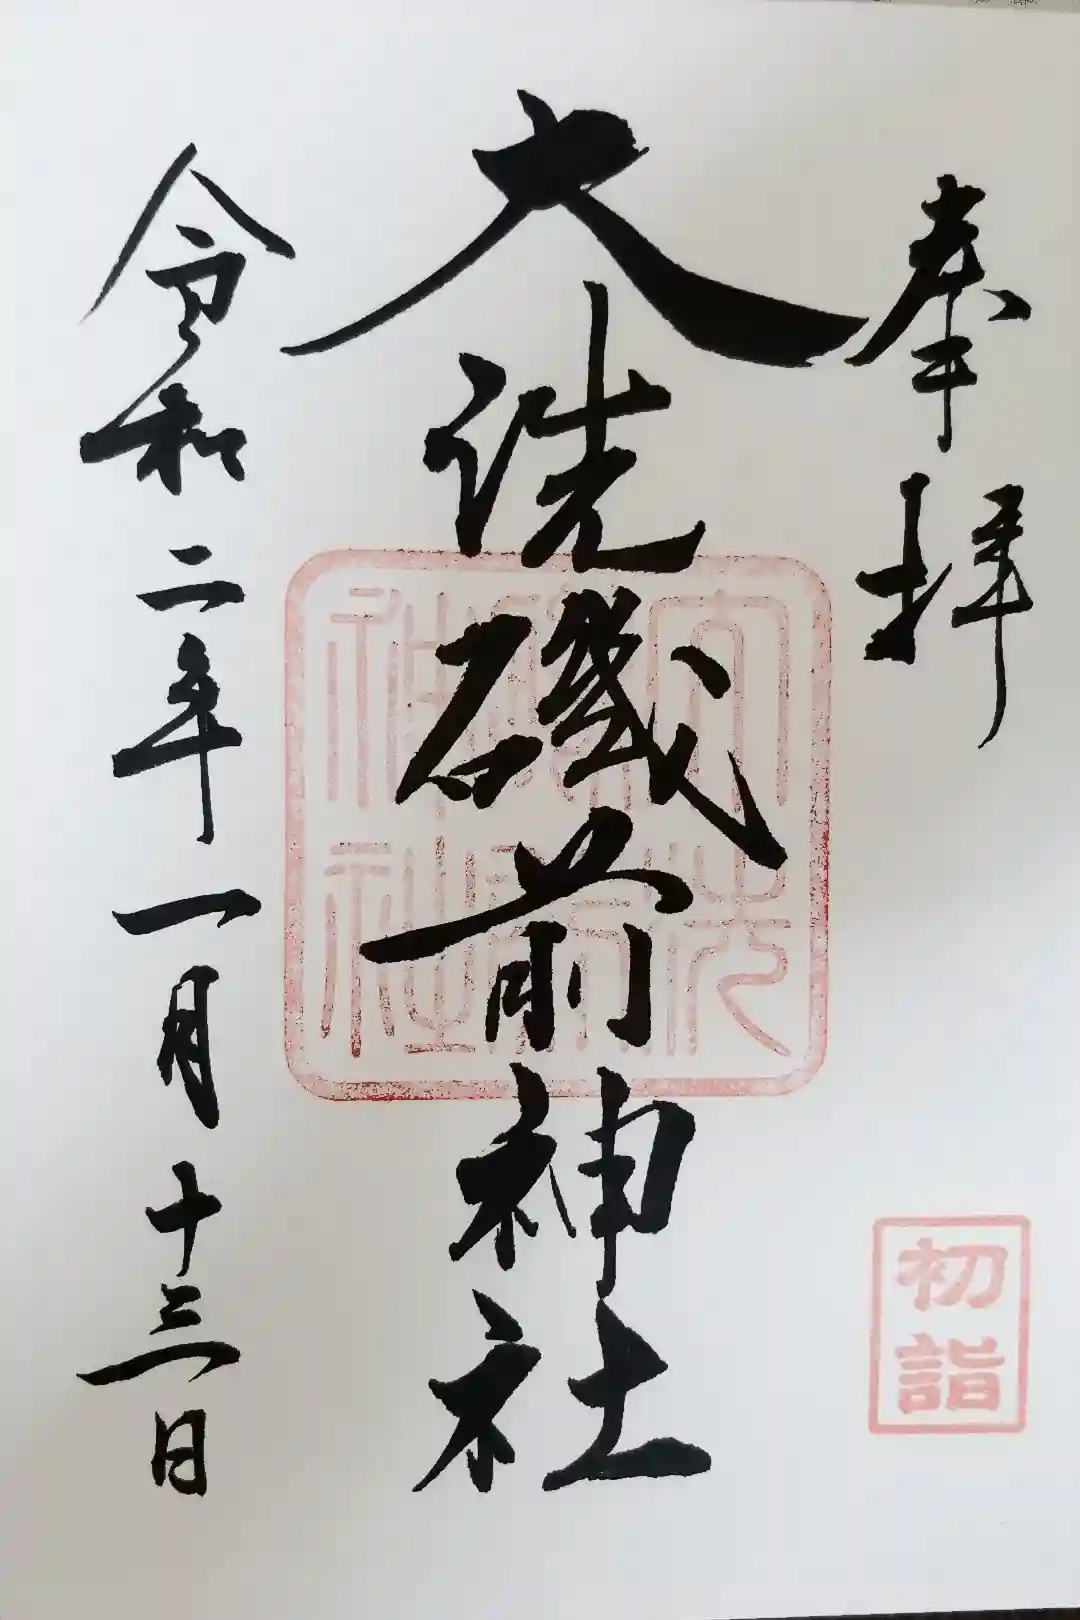 奉拝
初詣
大洗磯前神社
大洗磯前神社
令和二年一月十三日